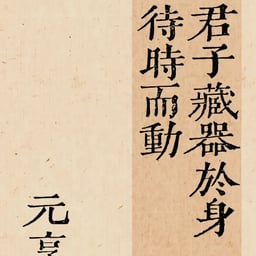 君子藏器於身
待時而動
元亨